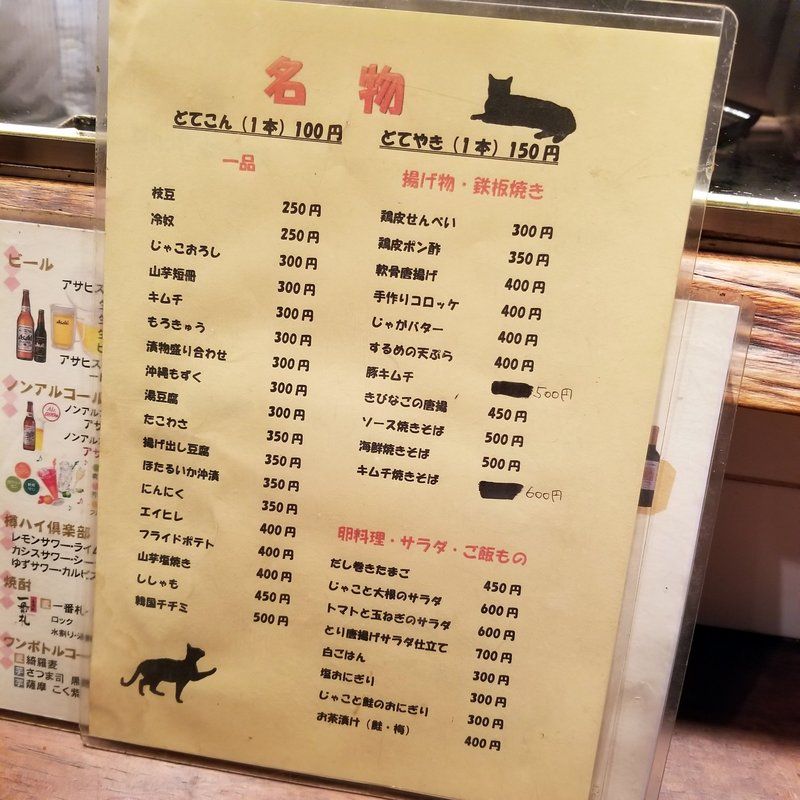 名物
どてこん（1本）100円
どてやき（1本）150円
一品
枝豆 250円
冷奴 250円
じゃこおろし 300円
山芋短冊 300円
キムチ 300円
もろきゅう 300円
漬物盛り合わせ 300円
沖縄もずく 300円
湯豆腐 300円
たこわさ 350円
揚げ出し豆腐 350円
ほたるいか沖漬 350円
にんにく 350円
エイヒレ 400円
フライドポテト 400円
山芋塩焼き 400円
ししゃも 450円
韓国チヂミ 500円
揚げ物・鉄板焼き
鶏皮せんべい 300円
鶏皮ポン酢 350円
軟骨唐揚げ 400円
手作りコロッケ 400円
じゃがバター 400円
するめの天ぷら 400円
豚キムチ 500円
きびなごの唐揚 450円
ソース焼きそば 500円
海鮮焼きそば 500円
キムチ焼きそば 600円
卵料理・サラダ・ご飯もの
だし巻きたまご 450円
じゃこと大根のサラダ 600円
トマトと玉ねぎのサラダ 600円
とり唐揚げサラダ仕立て 700円
白ごはん 300円
塩おにぎり 300円
じゃこと鮭のおにぎり 300円
お茶漬け（鮭・梅） 400円
ビール
アサヒス
アサヒス
ノンアルコール
ノンアル
ノンアル
樽ハイ倶楽部
レモンサワー・ライム
カシスサワー・シー
ゆずサワー・カルピス
焼酎
一番札
ロック
水割り・
ワンボトルコー
綾羅妻
さつま司 黒
薩摩 こく紫